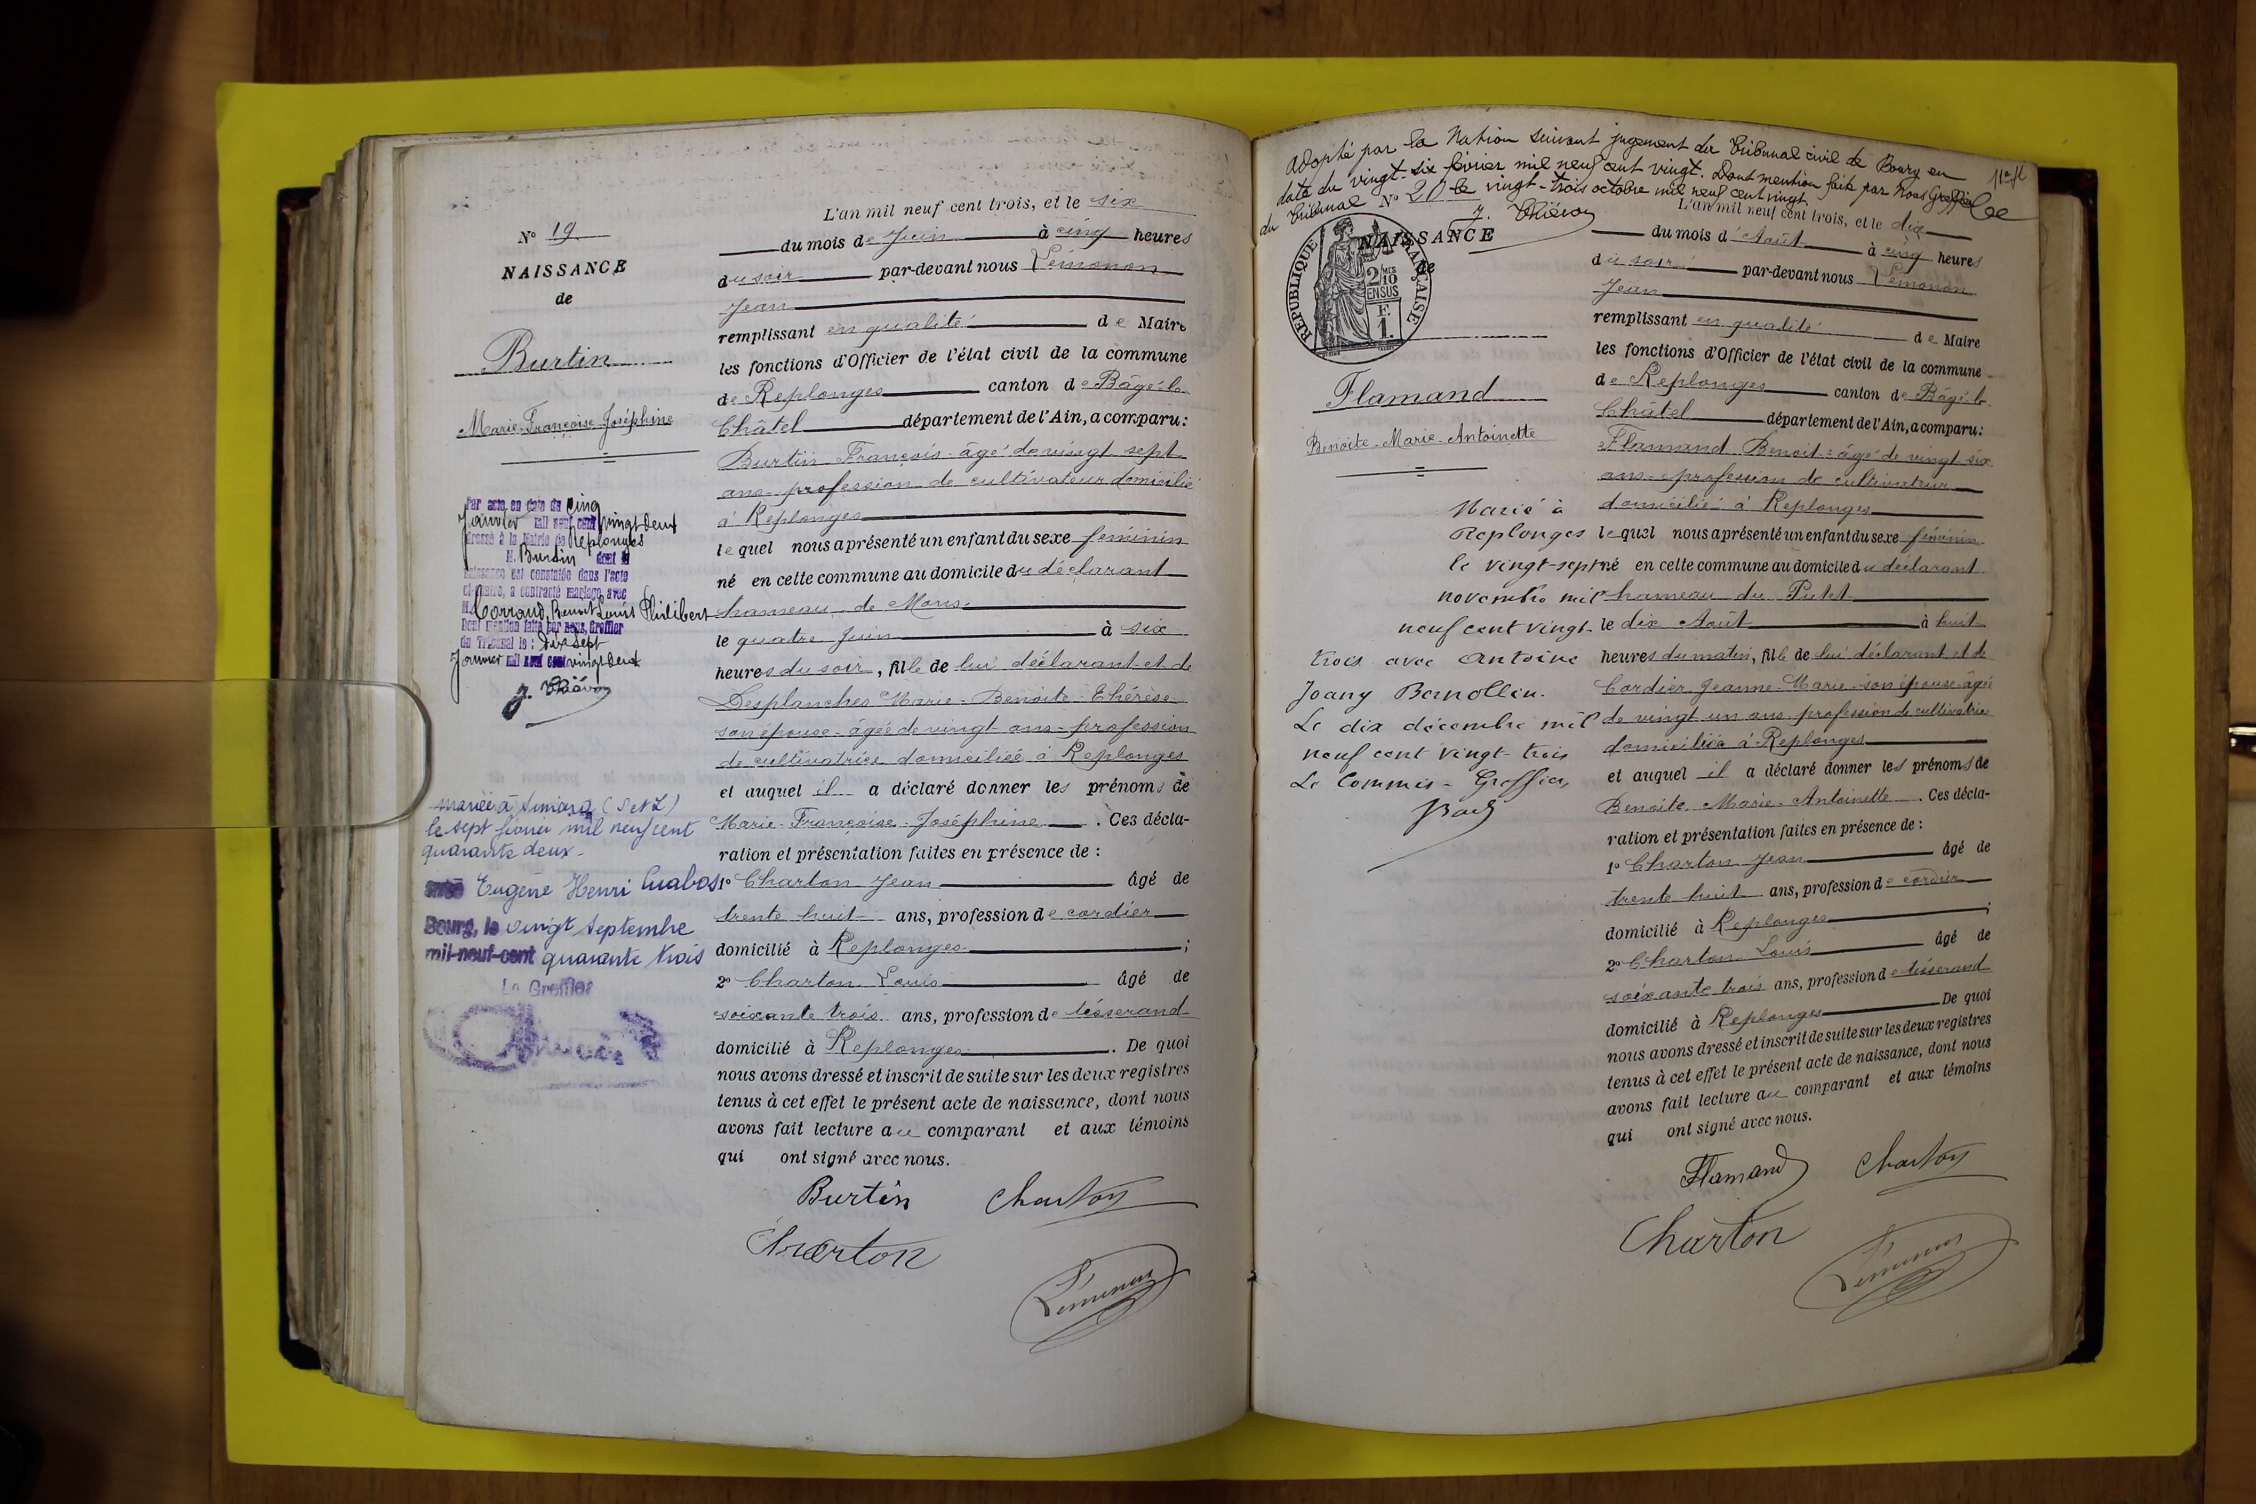 N° 19
NAISSANCE
de
Burtin
Marie-Françoise-Joséphine
Par acte en date du cinq
Janvier mil neuf cent vingt deux
dressé à la Mairie de Replonges
M. Burtin dont la
naissance est constatée dans l'acte
ci-contre, a contracté mariage avec
M. Corrand, Benoit Louis Philibert
Dont mention faite par nous, Greffier
du Tribunal le : dix sept
Janvier mil neuf cent vingt deux
mariée à Simard (S et L)
le sept février mil neuf cent
quarante deux
avec Eugène Henri Cuabos
Bourg, le vingt Septembre
mil-neuf-cent quarante trois
Le Greffier
L'an mil neuf cent trois, et le six
du mois de Juin à cinq heures
du soir par-devant nous Lémonon
Jean
remplissant en qualité de Maire
les fonctions d'Officier de l'état civil de la commune
de Replonges canton de Bâgé-le
Châtel département de l'Ain, a comparu :
Burtin François âgé de vingt sept
ans profession de cultivateur domicilié
à Replonges
lequel nous a présenté un enfant du sexe féminin
né en cette commune au domicile du déclarant
hameau de Mons
le quatre Juin à six
heures du soir, fille de lui déclarant et de
Desplanches Marie-Benoite-Thérèse
son épouse âgée de vingt ans profession
de cultivatrice domiciliée à Replonges
et auquel il a déclaré donner les prénoms de
Marie-Françoise-Joséphine. Ces décla-
ration et présentation faites en présence de :
1° Charton Jean âgé de
trente huit ans, profession de cordier
domicilié à Replonges ;
2° Charton Louis âgé de
soixante trois ans, profession de tisserand
domicilié à Replonges. De quoi
nous avons dressé et inscrit de suite sur les deux registres
tenus à cet effet le présent acte de naissance, dont nous
avons fait lecture au comparant et aux témoins
qui ont signé avec nous.
Burtin Charton
Charton
Lémonon
Adopté par la Nation suivant jugement du Tribunal civil de Bourg en
date du vingt-six février mil neuf cent vingt. Dont mention faite par Nous Greffier
du Tribunal le vingt-trois octobre mil neuf cent vingt
N° 20
NAISSANCE
de
RÉPUBLIQUE FRANÇAISE
2/10
EN SUS
F.
1.
Flamand
Benoite-Marie-Antoinette
Marié à
Replonges
le vingt-sept
novembre mil
neuf cent vingt-
trois avec Antoine
Joany Banollin.
Le dix décembre mil
neuf cent vingt-trois
Le Commis-Greffier,
L'an mil neuf cent trois, et le dix
du mois d'Août à cinq heures
du soir par-devant nous Lémonon
Jean
remplissant en qualité de Maire
les fonctions d'Officier de l'état civil de la commune
de Replonges canton de Bâgé-le
Châtel département de l'Ain, a comparu :
Flamand Benoit âgé de vingt six
ans profession de cultivateur
domicilié à Replonges
lequel nous a présenté un enfant du sexe féminin
né en cette commune au domicile du déclarant
hameau du Putet
le dix Août à huit
heures du matin, fille de lui déclarant et de
Cordier Jeanne-Marie son épouse âgée
de vingt un ans profession de cultivatrice
domiciliée à Replonges
et auquel il a déclaré donner les prénoms de
Benoite-Marie-Antoinette. Ces décla-
ration et présentation faites en présence de :
1° Charton Jean âgé de
trente huit ans, profession de cordier
domicilié à Replonges ;
2° Charton Louis âgé de
soixante trois ans, profession de tisserand
domicilié à Replonges De quoi
nous avons dressé et inscrit de suite sur les deux registres
tenus à cet effet le présent acte de naissance, dont nous
avons fait lecture au comparant et aux témoins
qui ont signé avec nous.
Flamand Charton
Charton
Lémonon